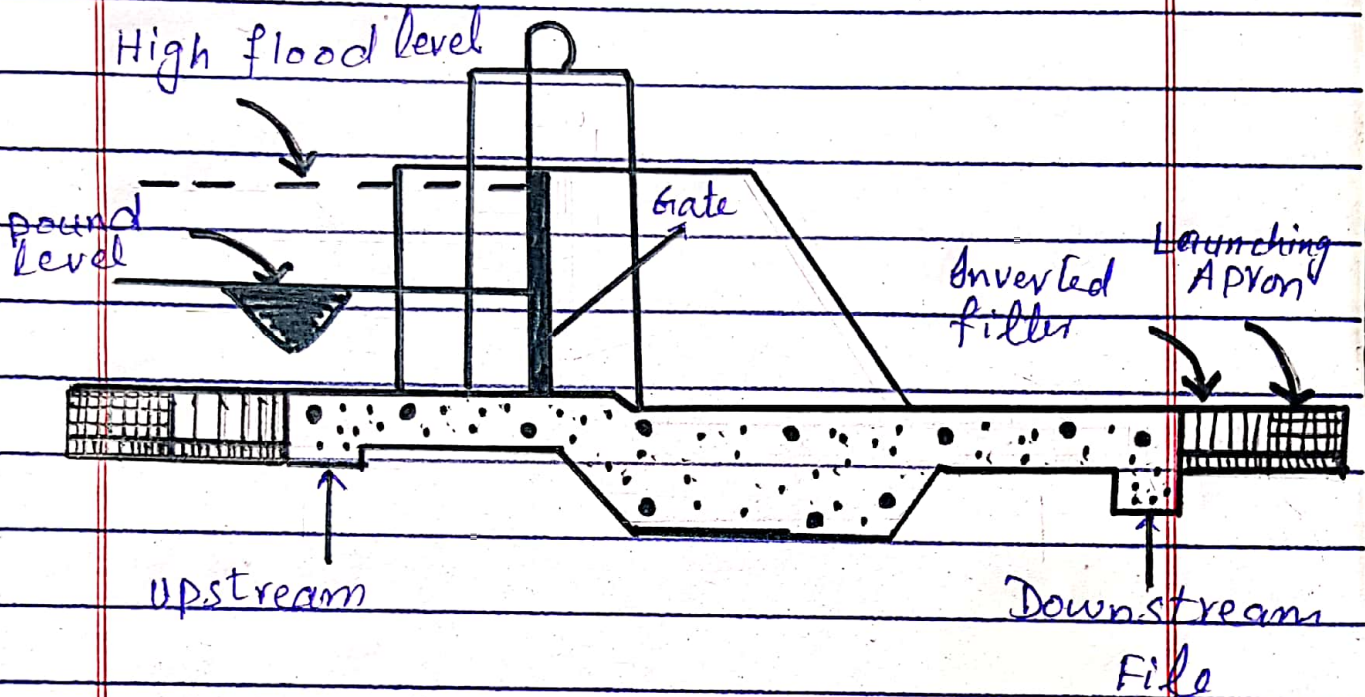 High flood level
pound
level
Gate
Inverted
filter
Launching
Apron
Upstream
Downstream
File